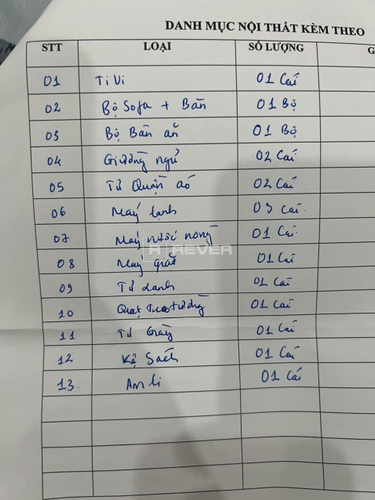 DANH MỤC NỘI THẤT KÈM THEO
STT LOẠI SỐ LƯỢNG G
01 Ti Vi 01 Cái
02 Bộ Sofa + Bàn 01 Bộ
03 Bộ Bàn ăn 01 Bộ
04 Giường ngủ 02 Cái
05 Tủ Quần áo 02 Cái
06 Máy lạnh 03 Cái
07 Máy nước nóng 01 Cái
REVER
08 Máy giặt 01 Cái
09 Tủ lạnh 01 Cái
10 Quạt treo tường 01 Cái
11 Tủ Giầy 01 Cái
12 Kệ Sách 01 Cái
13. Am li 01 Cái